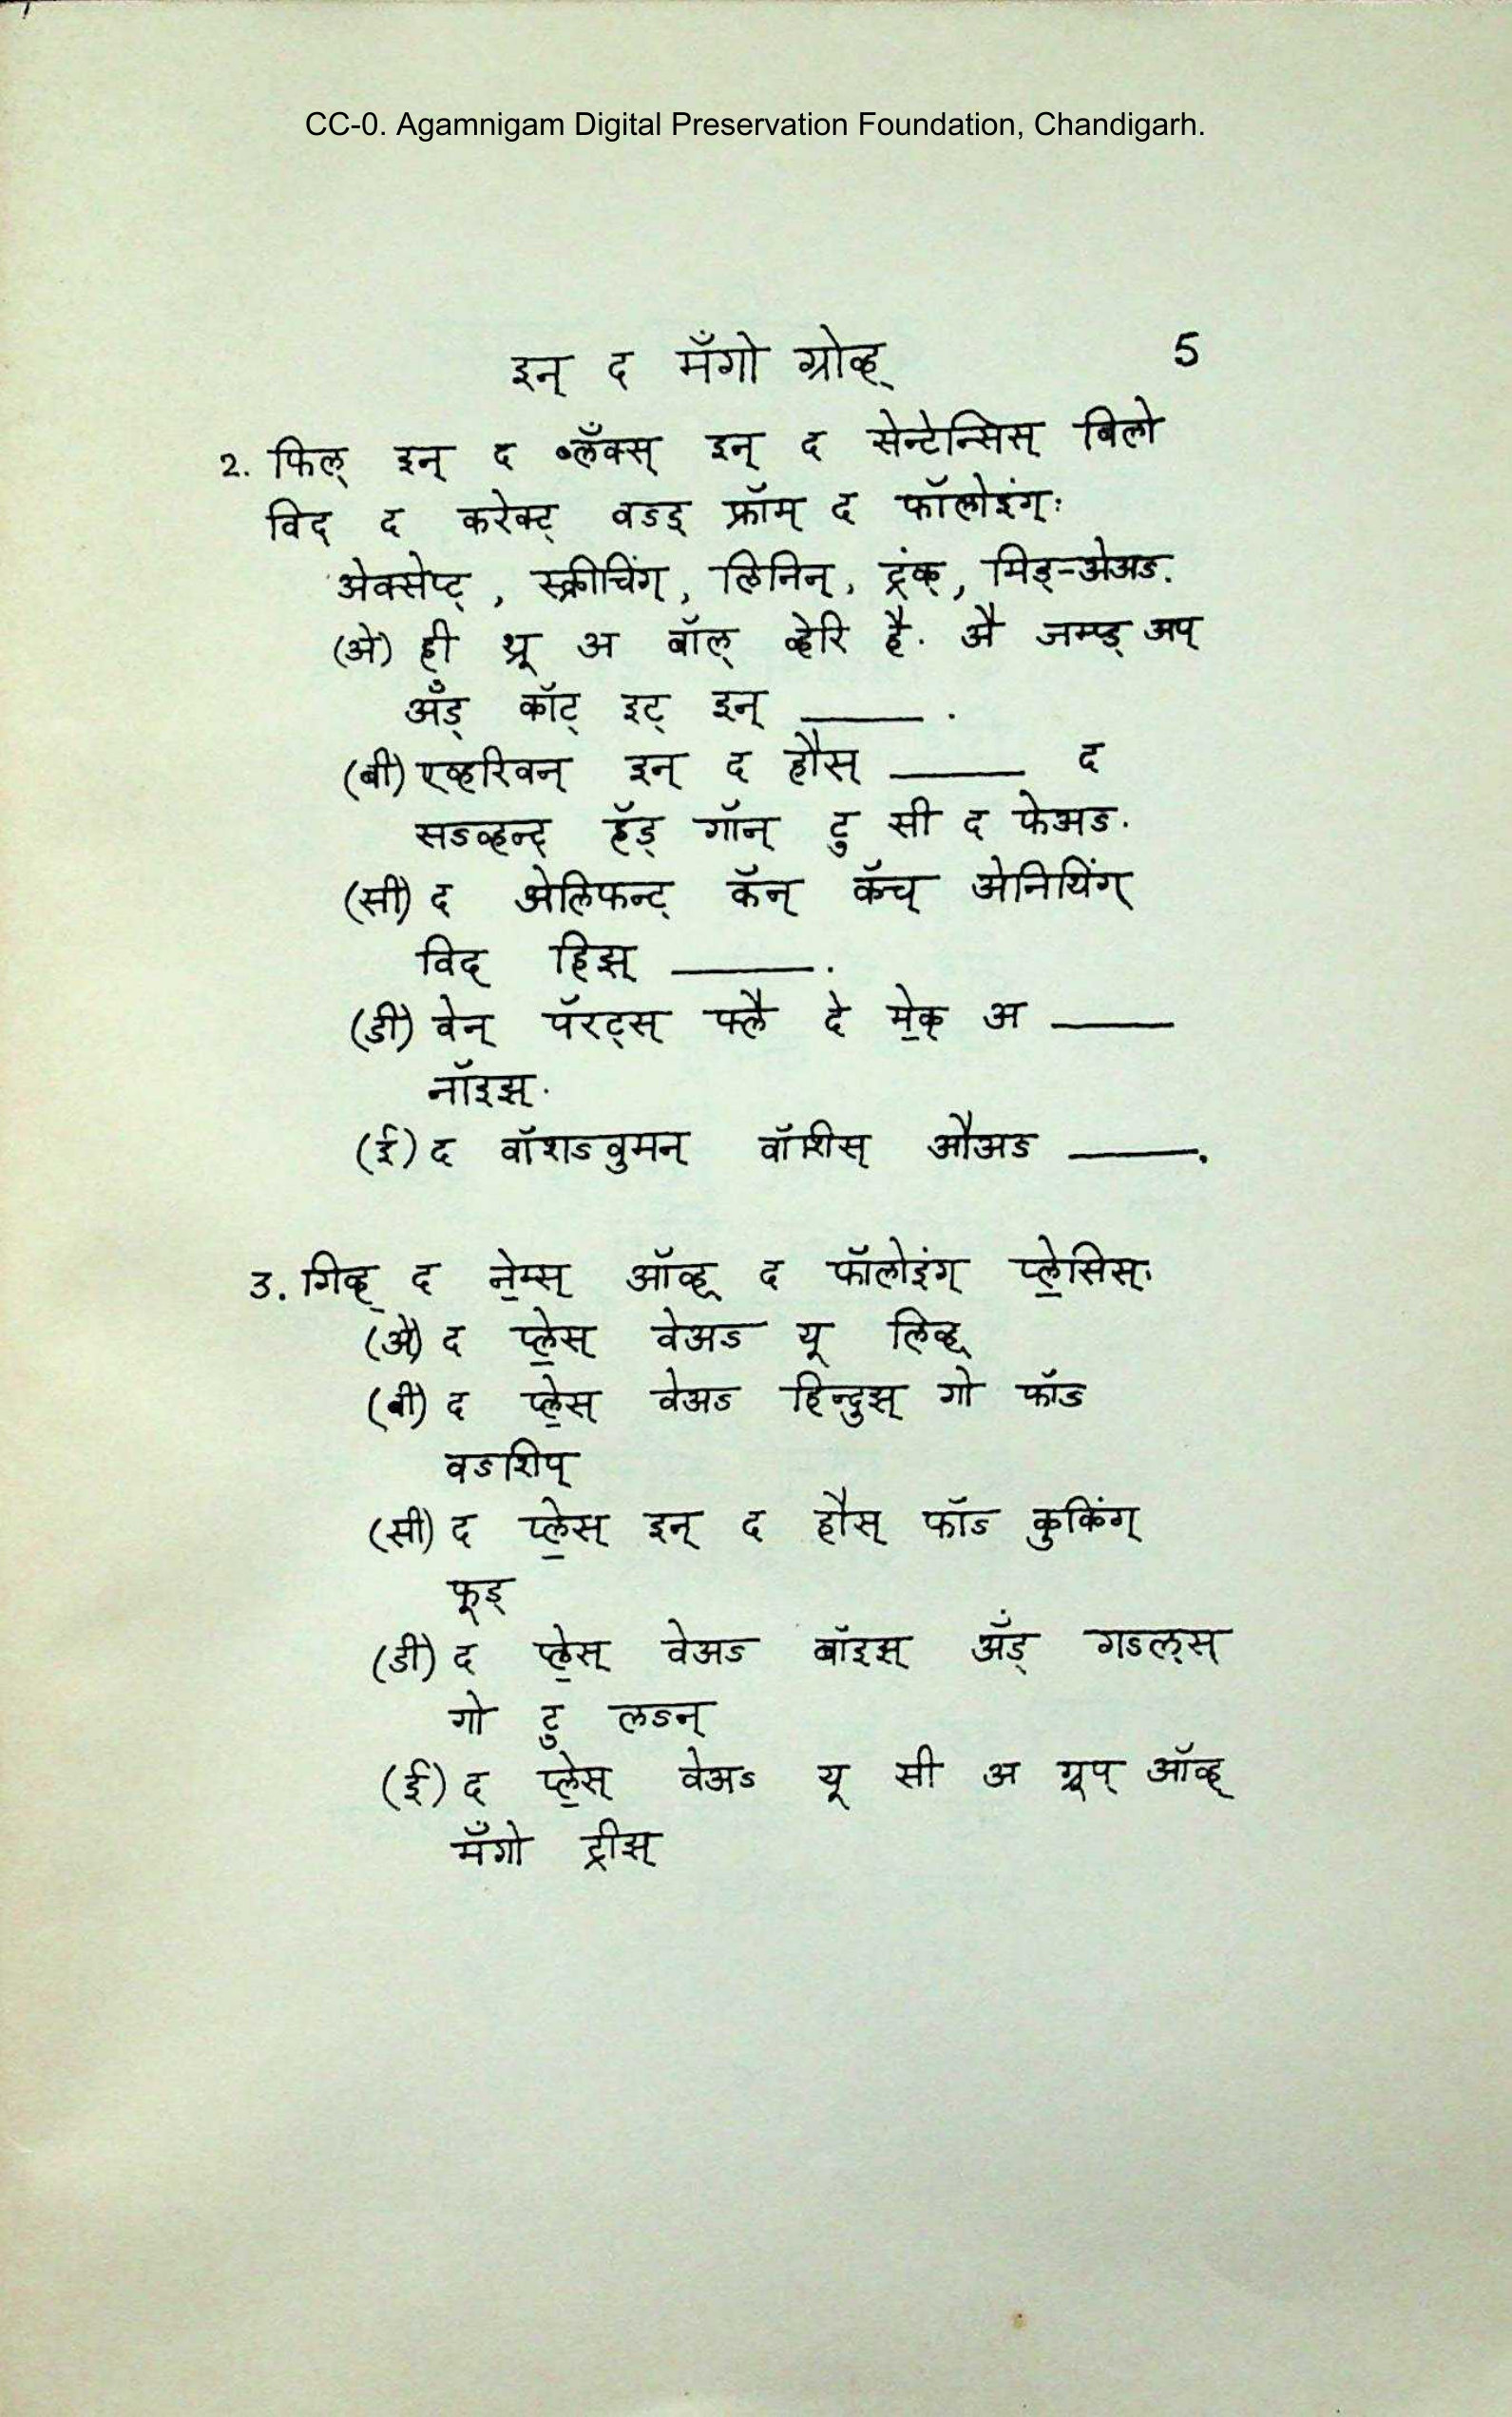 CC-0. Agamnigam Digital Preservation Foundation, Chandigarh.
इन् द मँगो ग्रोव्ह् 5
2. फिल् इन् द ब्लँक्स् इन् द सेन्टेन्सिस् बिलो
विद् द करेक्ट् वऽड् फ्रॉम् द फॉलोइंग्:
ॲक्सेप्ट्, स्क्रीचिंग्, लिनिन्, ट्रंक्, मिड्-अेअऽ.
(अे) ही थ्रू अ बॉल् व्हेरि है. अै जम्प्ड् अप्
अँड् कॉट् इट् इन् ____ .
(बी) एव्हरिवन् इन् द हौस् ____ द
सऽव्हन्ट् हॅड् गॉन् टु सी द फेअऽ.
(सी) द अेलिफन्ट् कॅन् कॅच् अेनिथिंग्
विद् हिझ् ____.
(डी) वेन् पॅरट्स् फ्लै दे मे॒क् अ ____
नॉइझ्.
(ई) द वॉशऽवुमन् वॉशिस् औअऽ ____.
3. गिव्ह् द ने॒म्स् ऑव्ह् द फॉलोइंग् प्ले॒सिस्:
(अे) द प्ले॒स् वेअऽ यू लिव्ह्
(बी) द प्ले॒स् वेअऽ हिन्दुझ् गो फॉऽ
वऽशिप्
(सी) द प्ले॒स् इन् द हौस् फॉऽ कुकिंग्
फूड्
(डी) द प्ले॒स् वेअऽ बॉइझ् अँड् गऽल्स्
गो टु लऽन्
(ई) द प्ले॒स् वेअऽ यू सी अ ग्रूप् ऑव्ह्
मँगो ट्रीझ्